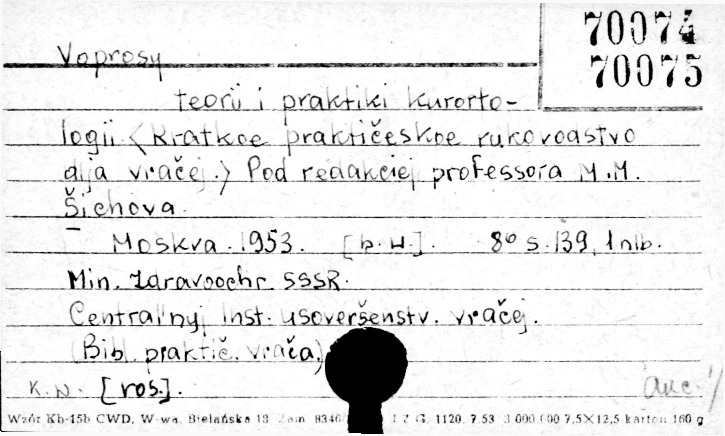 70074
70075
Voprosy
teorii i praktiki kurorto-
logii <Kratkoe praktičeskoe rukovodstvo
dlja vračej.> Pod redakciej professora M.M.
Šichova.
Moskva. 1953. [b.w.]. 8° s. 139, 1 nlb.
Min. zdravoochr. SSSR.
Central'nyj Inst. usoveršenstv. vračej.
(Bibl. praktič. vrača)
K.N. [ros.].
Wzór Kb-15b CWD, W-wa, Bielańska 18 Zam 8346/ 1 Z G. 1120. 7.53 3 000 000 7,5×12,5 karton 160 g